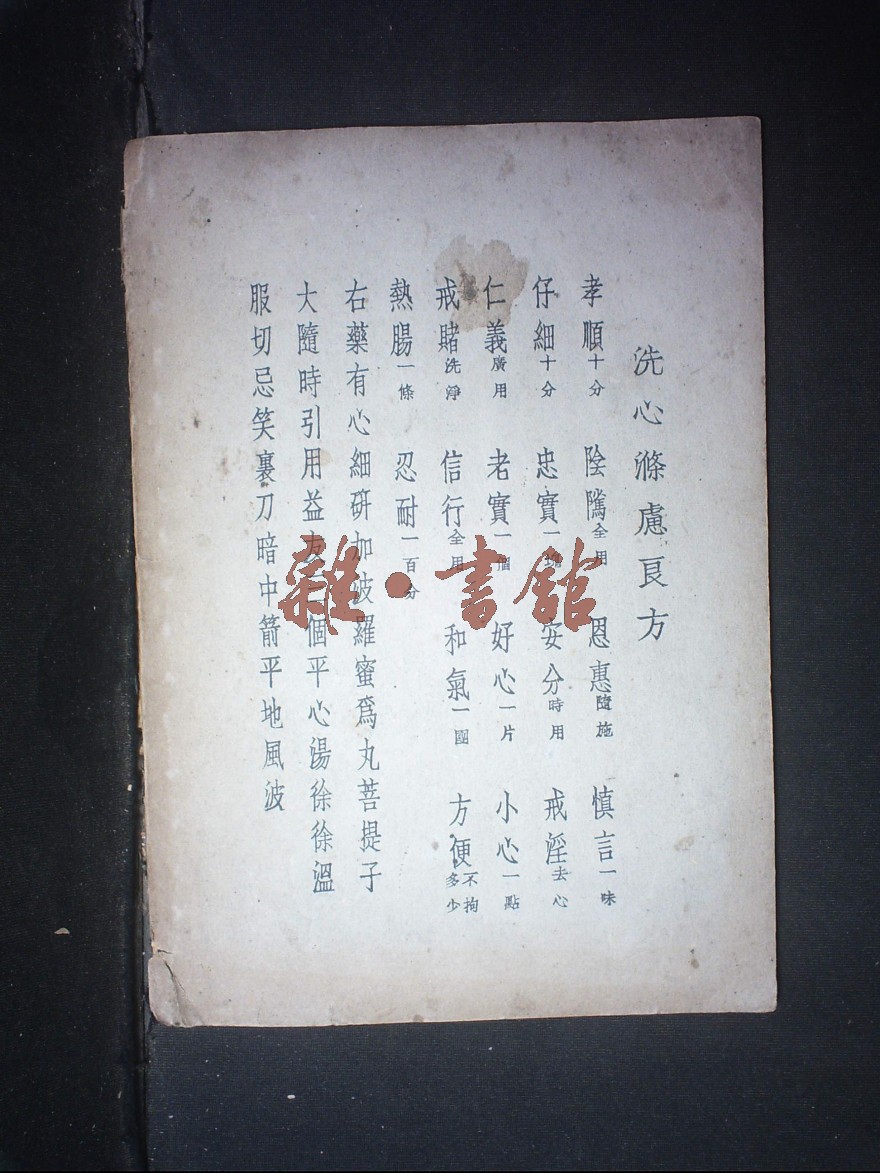 洗心滌慮良方
孝順十分 陰隲全用 恩惠隨施 慎言一味
仔細十分 忠實一塊 安分時用 戒淫去心
仁義廣用 老實一個 好心一片 小心一點
戒賭洗淨 信行全用 和氣一團 方便不拘多少
熱腸一條 忍耐一百分
右藥有心細研加波羅蜜爲丸菩提子
大隨時引用益友 個平心湯徐徐溫
服切忌笑裏刀暗中箭平地風波
雜·書館